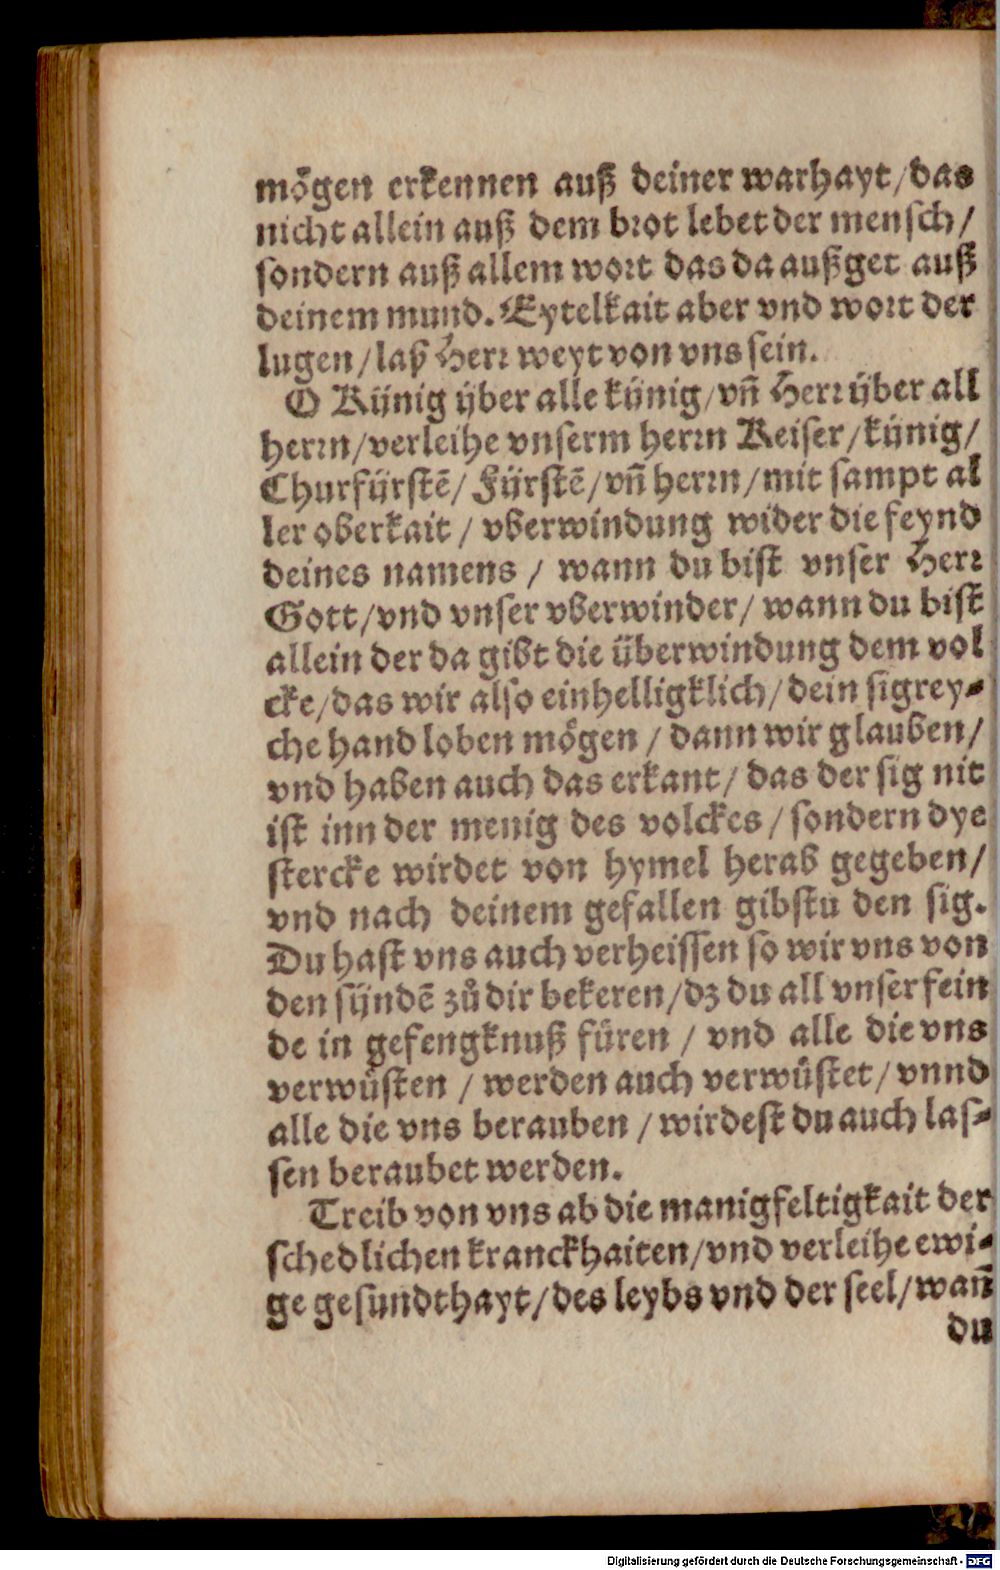 mögen erkennen auß deiner warhayt/das
nicht allein auß dem brot lebet der mensch/
sondern auß allem wort das da außget auß
deinem mund. Eytelkait aber vnd wort der
lugen/laß Herr weyt von vns sein.
O Künig über alle künig/vñ Herr über all
herrn/verleihe vnserm herrn Keiser/künig/
Churfürstē/Fürstē/vñ herrn/mit sampt al
ler oberkait/vberwindung wider die feynd
deines namens/wann du bist vnser Herr
Gott/vnd vnser vberwinder/wann du bist
allein der da gibt die überwindung dem vol
cke/das wir also einhelligklich/dein sigrey⸗
che hand loben mögen/dann wir glauben/
vnd haben auch das erkant/das der sig nit
ist inn der menig des volckes/sondern dye
stercke wirdet von hymel herab gegeben/
vnd nach deinem gefallen gibstu den sig.
Du hast vns auch verheissen so wir vns von
den sündē zů dir bekeren/dz du all vnser fein
de in gefengknuß füren/vnd alle die vns
verwüsten/werden auch verwüstet/vnnd
alle die vns berauben/wirdest du auch las⸗
sen beraubet werden.
Treib von vns ab die manigfeltigkait der
schedlichen kranckhaiten/vnd verleihe ewi⸗
ge gesundthayt/des leybs vnd der seel/wañ
du
Digitalisierung gefördert durch die Deutsche Forschungsgemeinschaft - DFG